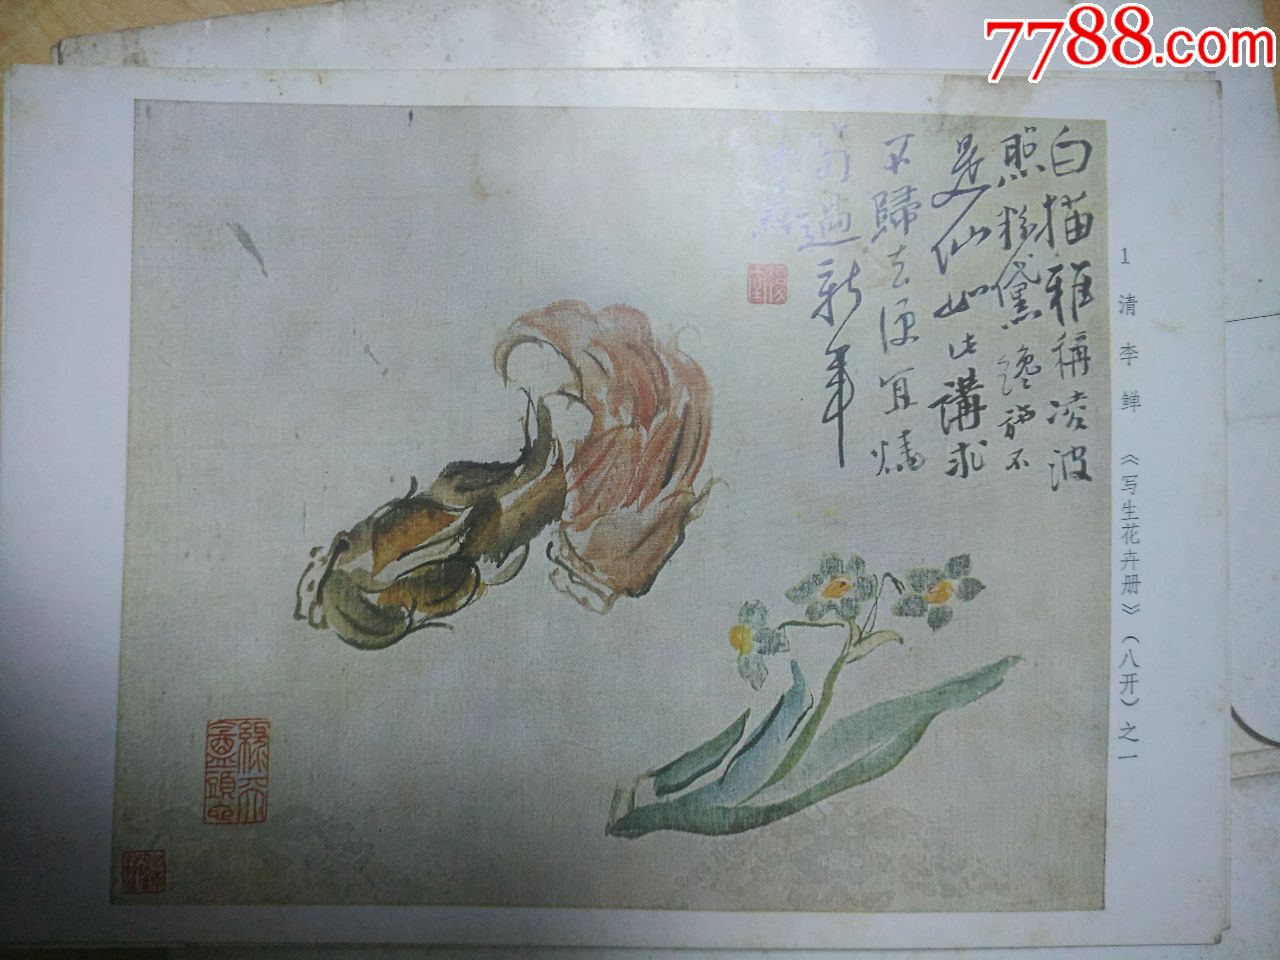 7788.com
白描雅稱凌波
照粉黛纔施不
是仙山比講求
不歸去便宜燒
筍過新年
1 清 李 鱓 《写生花卉册》(八开)之一